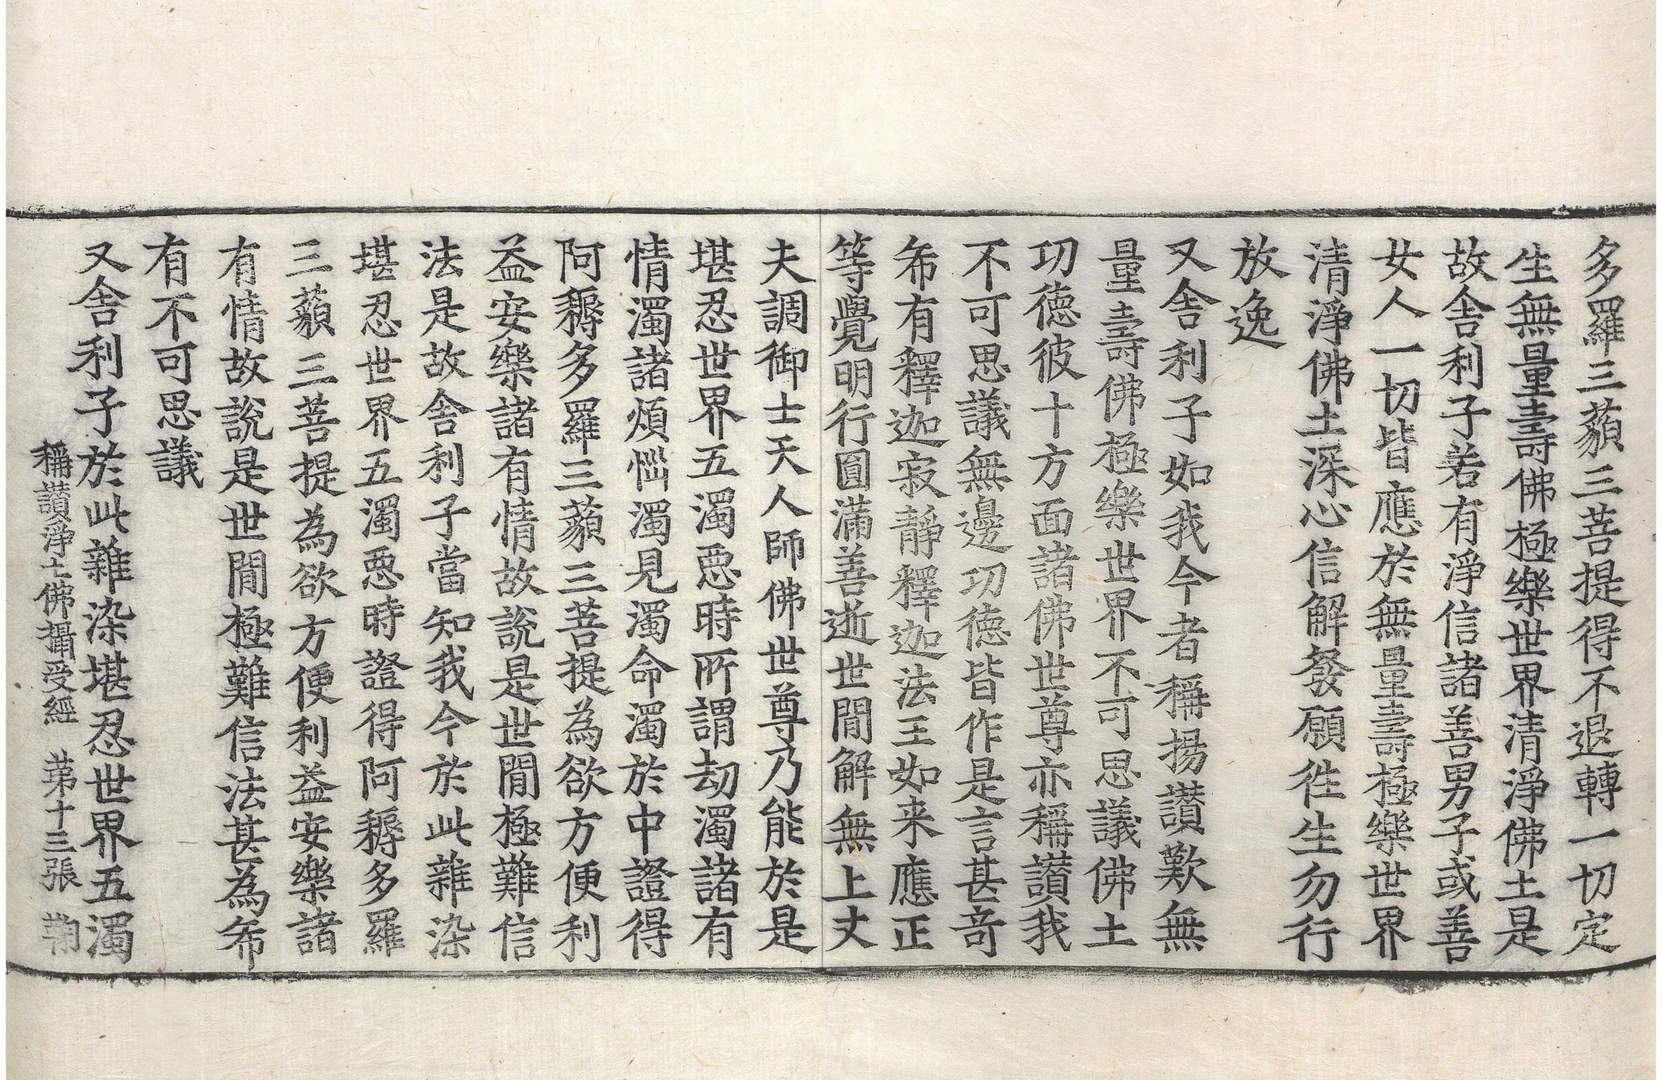 多羅三藐三菩提得不退轉一切定
生無量壽佛極樂世界清淨佛土是
故舍利子若有淨信諸善男子或善
女人一切皆應於無量壽極樂世界
清淨佛土深心信解發願徃生勿行
放逸
又舍利子如我今者稱揚讃歎無
量壽佛極樂世界不可思議佛土
功德彼十方面諸佛世尊亦稱讃我
不可思議無邊功德皆作是言甚奇
希有釋迦寂靜釋迦法王如来應正
等覺明行圓滿善逝世間解無上丈
夫調御士天人師佛世尊乃能於是
堪忍世界五濁惡時所謂劫濁諸有
情濁諸煩惱濁見濁命濁於中證得
阿耨多羅三藐三菩提為欲方便利
益安樂諸有情故說是世間極難信
法是故舍利子當知我今於此雜染
堪忍世界五濁惡時證得阿耨多羅
三藐三菩提為欲方便利益安樂諸
有情故說是世間極難信法甚為希
有不可思議
又舍利子於此雜染堪忍世界五濁
稱讃淨土佛攝受經 苐十三張 鞠